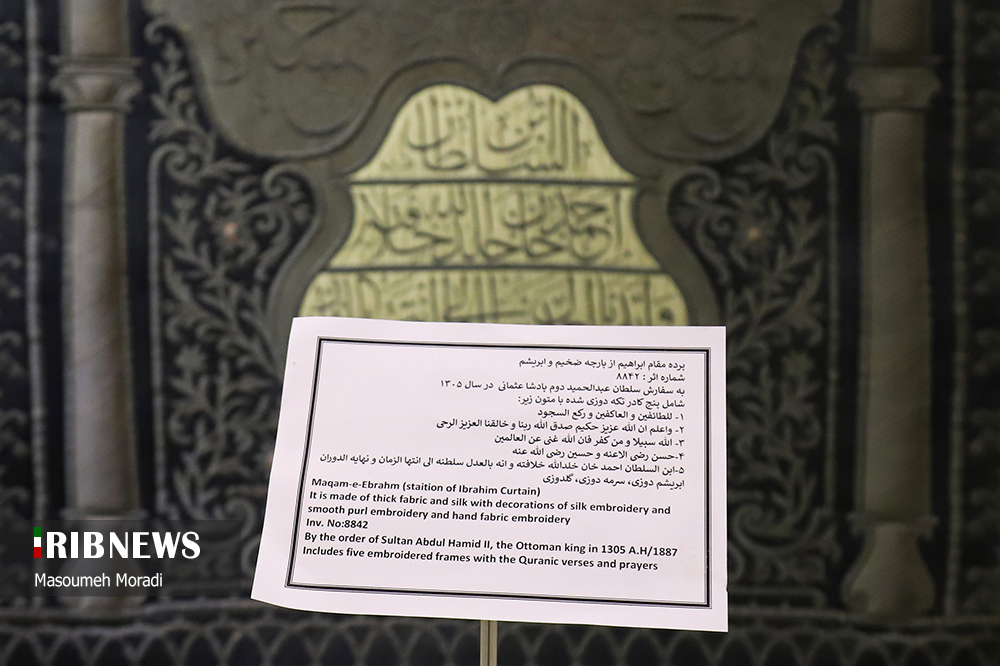 بن السلطان
برده مقام ابراهیم از پارچه ضخیم و ابریشم
شماره اثر : ۸۸۴۲
به سفارش سلطان عبدالحمید دوم پادشا عثمانی در سال ۱۳۰۵
شامل پنج کادر تکه دوزی شده با متون زیر:
۱- للطائفین و العاکفین و رکع السجود
۲- واعلم ان الله عزیز حکیم صدق الله ربنا و خالقنا العزیز الرحی
۳- الله سبیلا و من کفر فان الله غنی عن العالمین
۴-حسن رضی الاعنه و حسین رضی الله عنه
۵-ابن السلطان احمد خان خلدالله خلافته و انه بالعدل سلطنه الی انتها الزمان و نهایه الدوران
ابریشم دوزی، سرمه دوزی، گلدوزی
Maqam-e-Ebrahm (staition of Ibrahim Curtain)
It is made of thick fabric and silk with decorations of silk embroidery and
smooth purl embroidery and hand fabric embroidery
Inv. No:8842
By the order of Sultan Abdul Hamid II, the Ottoman king in 1305 A.H/1887
Includes five embroidered frames with the Quranic verses and prayers
IRIBNEWS
Masoumeh Moradi